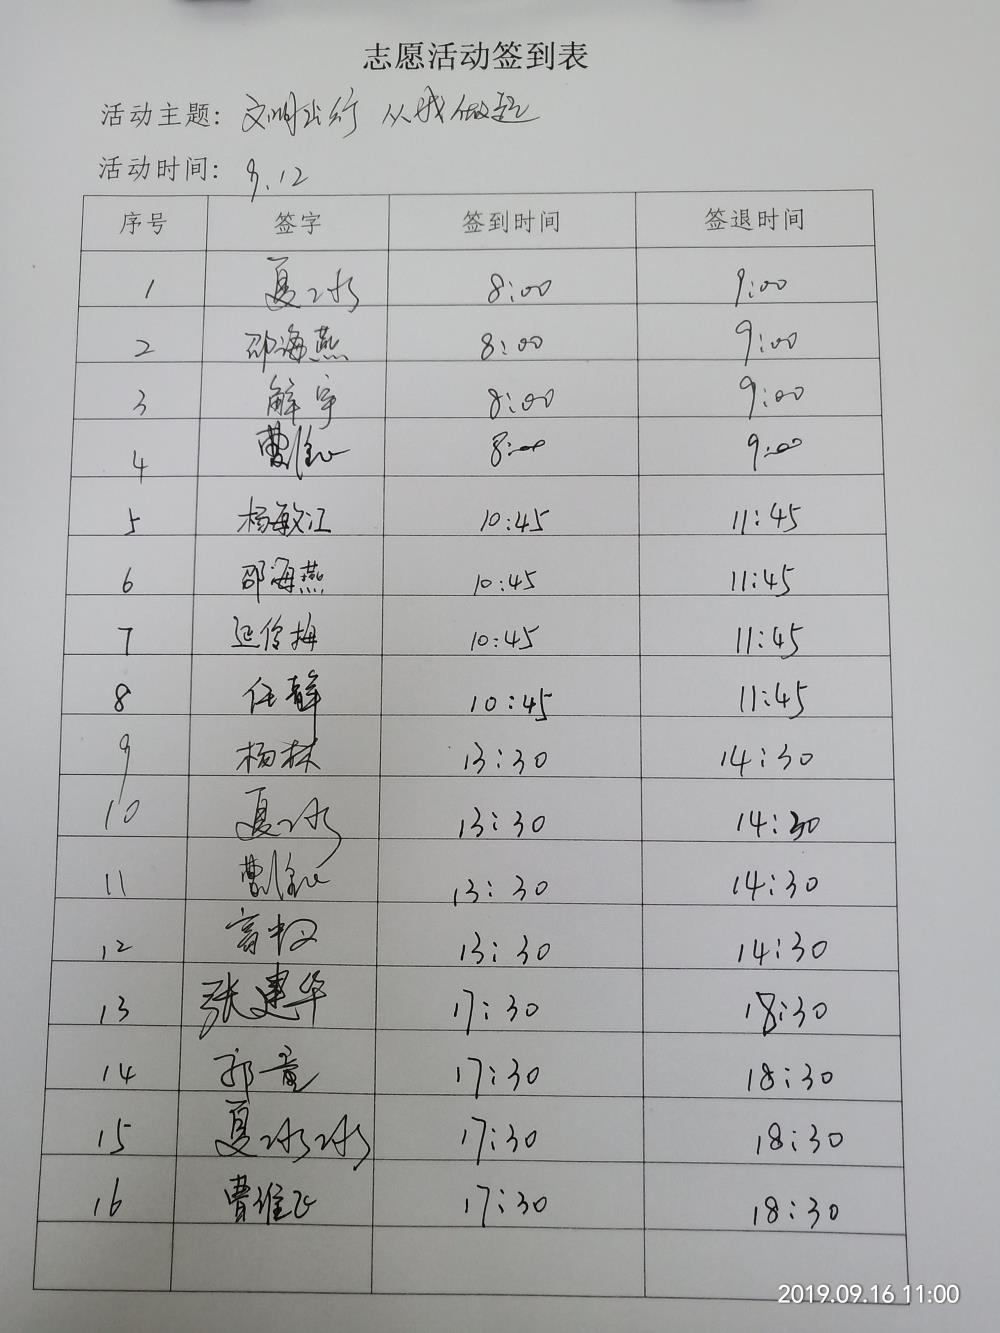 志愿活动签到表
活动主题: 文明出行 从我做起
活动时间: 9.12
序号 签字 签到时间 签退时间
1 夏冰 8:00 9:00
2 邵海燕 8:00 9:00
3 解宇 8:00 9:00
4 曹维 8:00 9:00
5 杨敏江 10:45 11:45
6 邵海燕 10:45 11:45
7 10:45 11:45
8 任静 10:45 11:45
9 杨林 13:30 14:30
10 夏冰 13:30 14:30
11 曹 13:30 14:30
12 13:30 14:30
13 张建华 17:30 18:30
14 郭 17:30 18:30
15 夏冰冰 17:30 18:30
16 曹维 17:30 18:30
2019.09.16 11:00